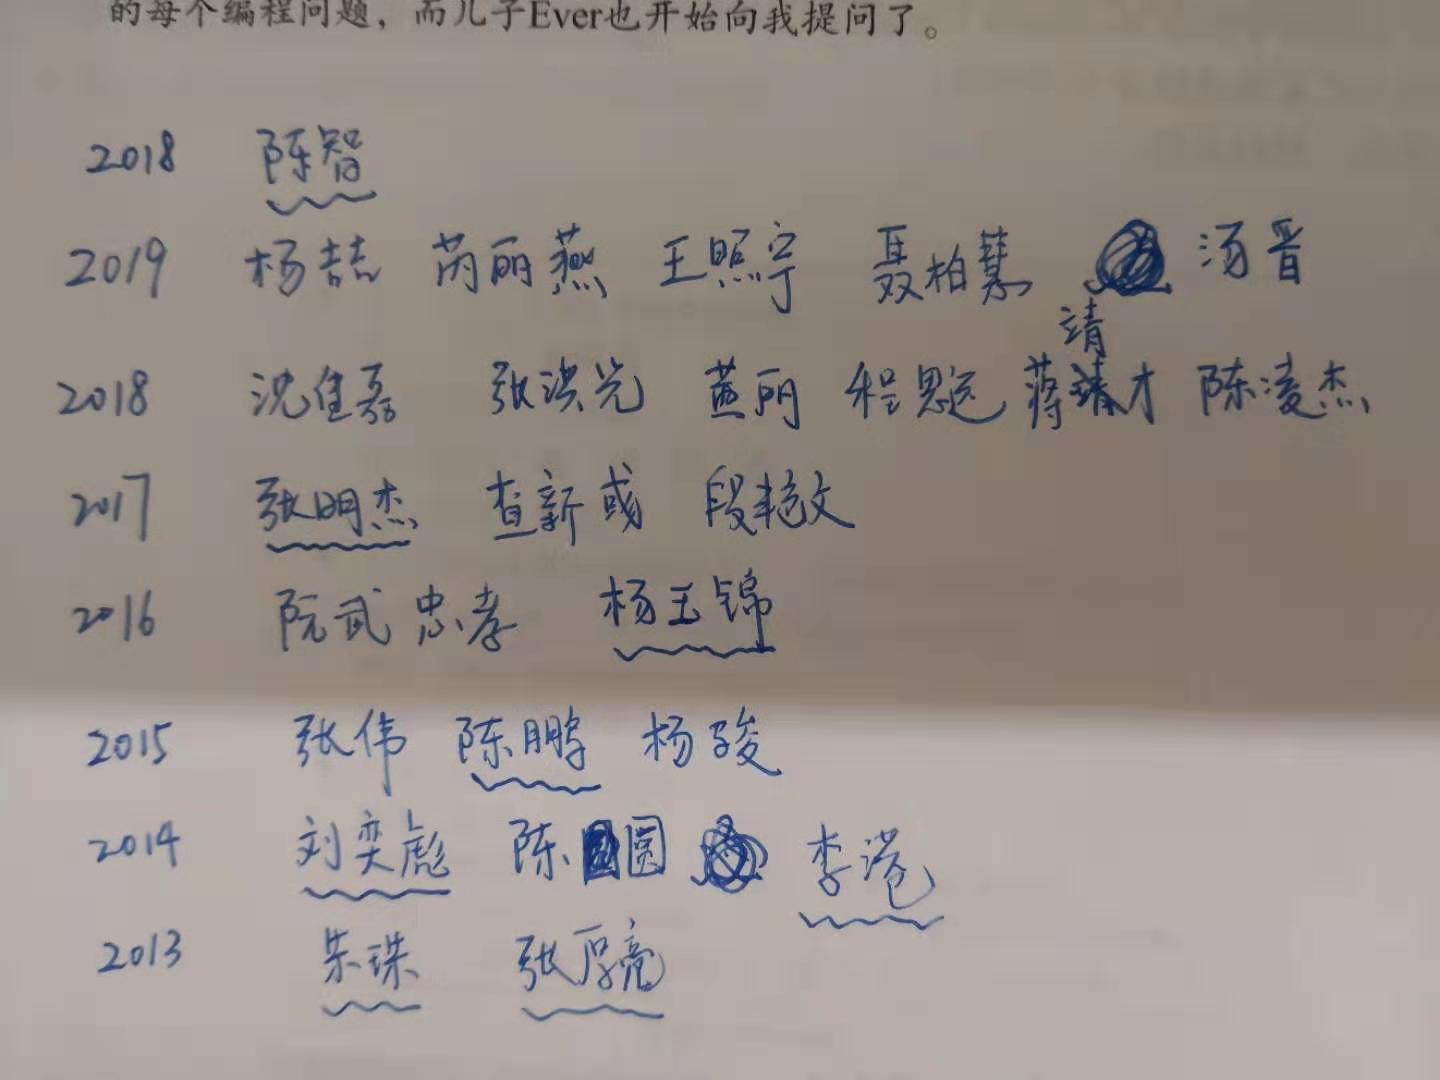 的每个编程问题，而儿子Ever也开始向我提问了。
2018 陈智
2019 杨喆 芮丽燕 王照宁 聂柏慧 汤晋
2018 沈佳磊 张洪光 黄丽 程思远 蒋靖才 陈凌杰
2017 张明杰 查新或 段艳文
2016 阮武忠孝 杨玉锦
2015 张伟 陈鹏 杨骏
2014 刘奕彪 陈圆 李港
2013 朱珠 张厚亮